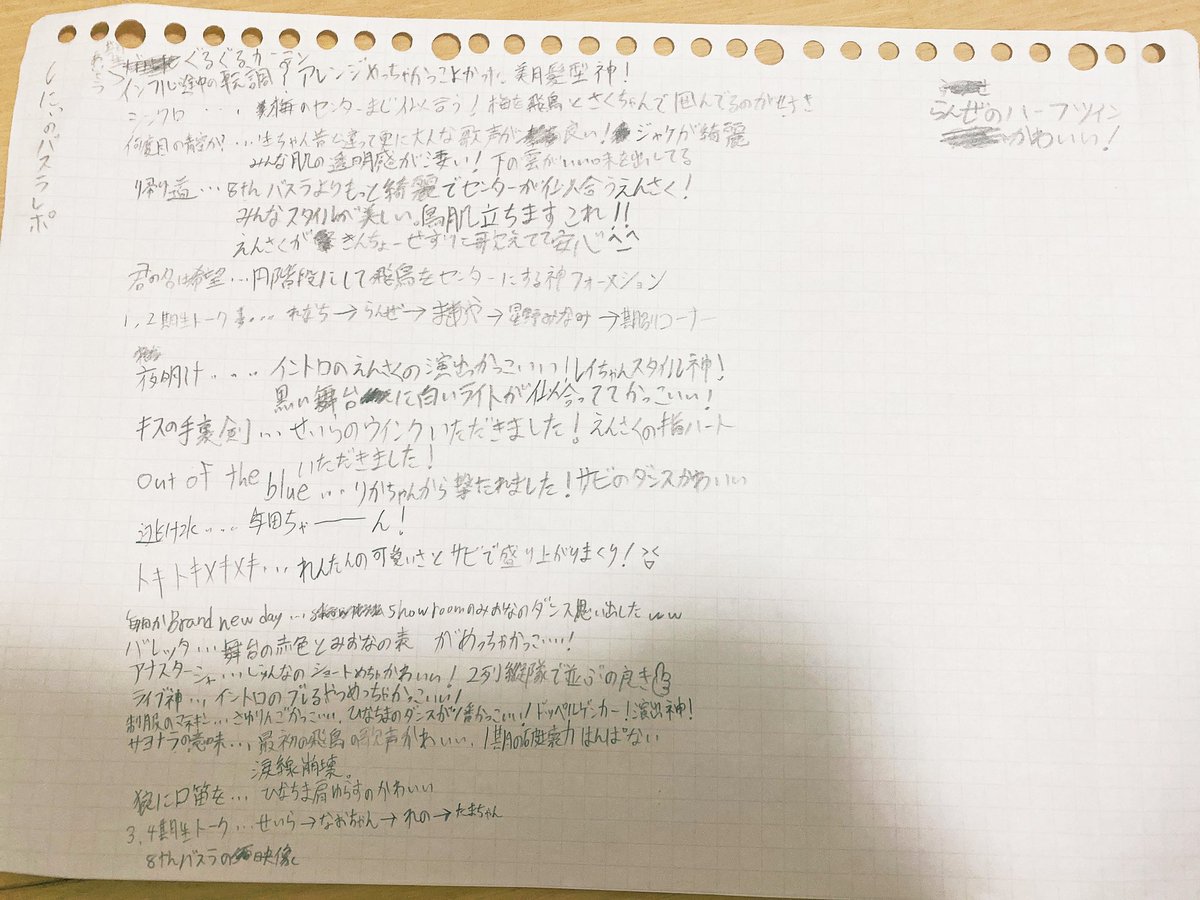 しにいのバスラレポ
ぐるぐるカーテン
インフルエンサー途中の転調? アレンジめっちゃかっこよかった、美月髪型神!
シンクロ・・・梅のセンターまじ似合う!梅を飛鳥とさくちゃんで囲んでるのがせこき
何度目の青空か?...生ちゃん昔と違って更に大人な歌声が良い!ジャケが綺麗
みんな肌の透明感が凄い!下の雲がいい味を出してる
帰り道...8thバスラよりもっと綺麗でセンターが似合うえんさく!
みんなスタイルが美しい。鳥肌立ちますこれ!!
えんさくがきんちょーせずに歌えてて安心^-^
君の名は希望...円階段にして飛鳥をセンターにする神フォーメション
1,2期生トーク...れなち→らんぜ→まあや→星野みなみ→期別コーナー
夜明け....イントロのえんさくの演出かっこいいッ!レイちゃんスタイル神!
黒い舞台に白いライトが似合っててかっこいい!
キスの手裏剣...せいらのウインクいただきました!えんさくの指ハート
いただきました!
out of the blue...りかちゃんから撃たれました!サビのダンスかわいい
逃げ水....与田ちゃーーん!
トキトキメキメキ...れんたんの可愛いさとサビで盛り上がりまくり!
毎日がBrand new day...showroomのみおなのダンス思い出したww
バレッタ...舞台の赤色とみおなの表 がめっちゃかっこいい!
アナスターシャ...じゅんなのショートめちゃかわいい!2列縦隊で並ぶの良き
ライブ神...イントロのブレるやつめっちゃかっこいい!
制服のマネキン...さゆりんごかっこいい、ひなちまのダンスが1番かっこいい!ドッペルゲンガー!演出神!
サヨナラの意味...最初の飛鳥の歌声かわいい、1期の破壊力はんぱない
涙線崩壊。
狼に口笛を...ひなちま肩ゆらすのかわいい
3,4期生トーク...せいら→なおちゃん→れの→たまちゃん
8thバスラの映像
らんぜのハーフツイン
かわいい!